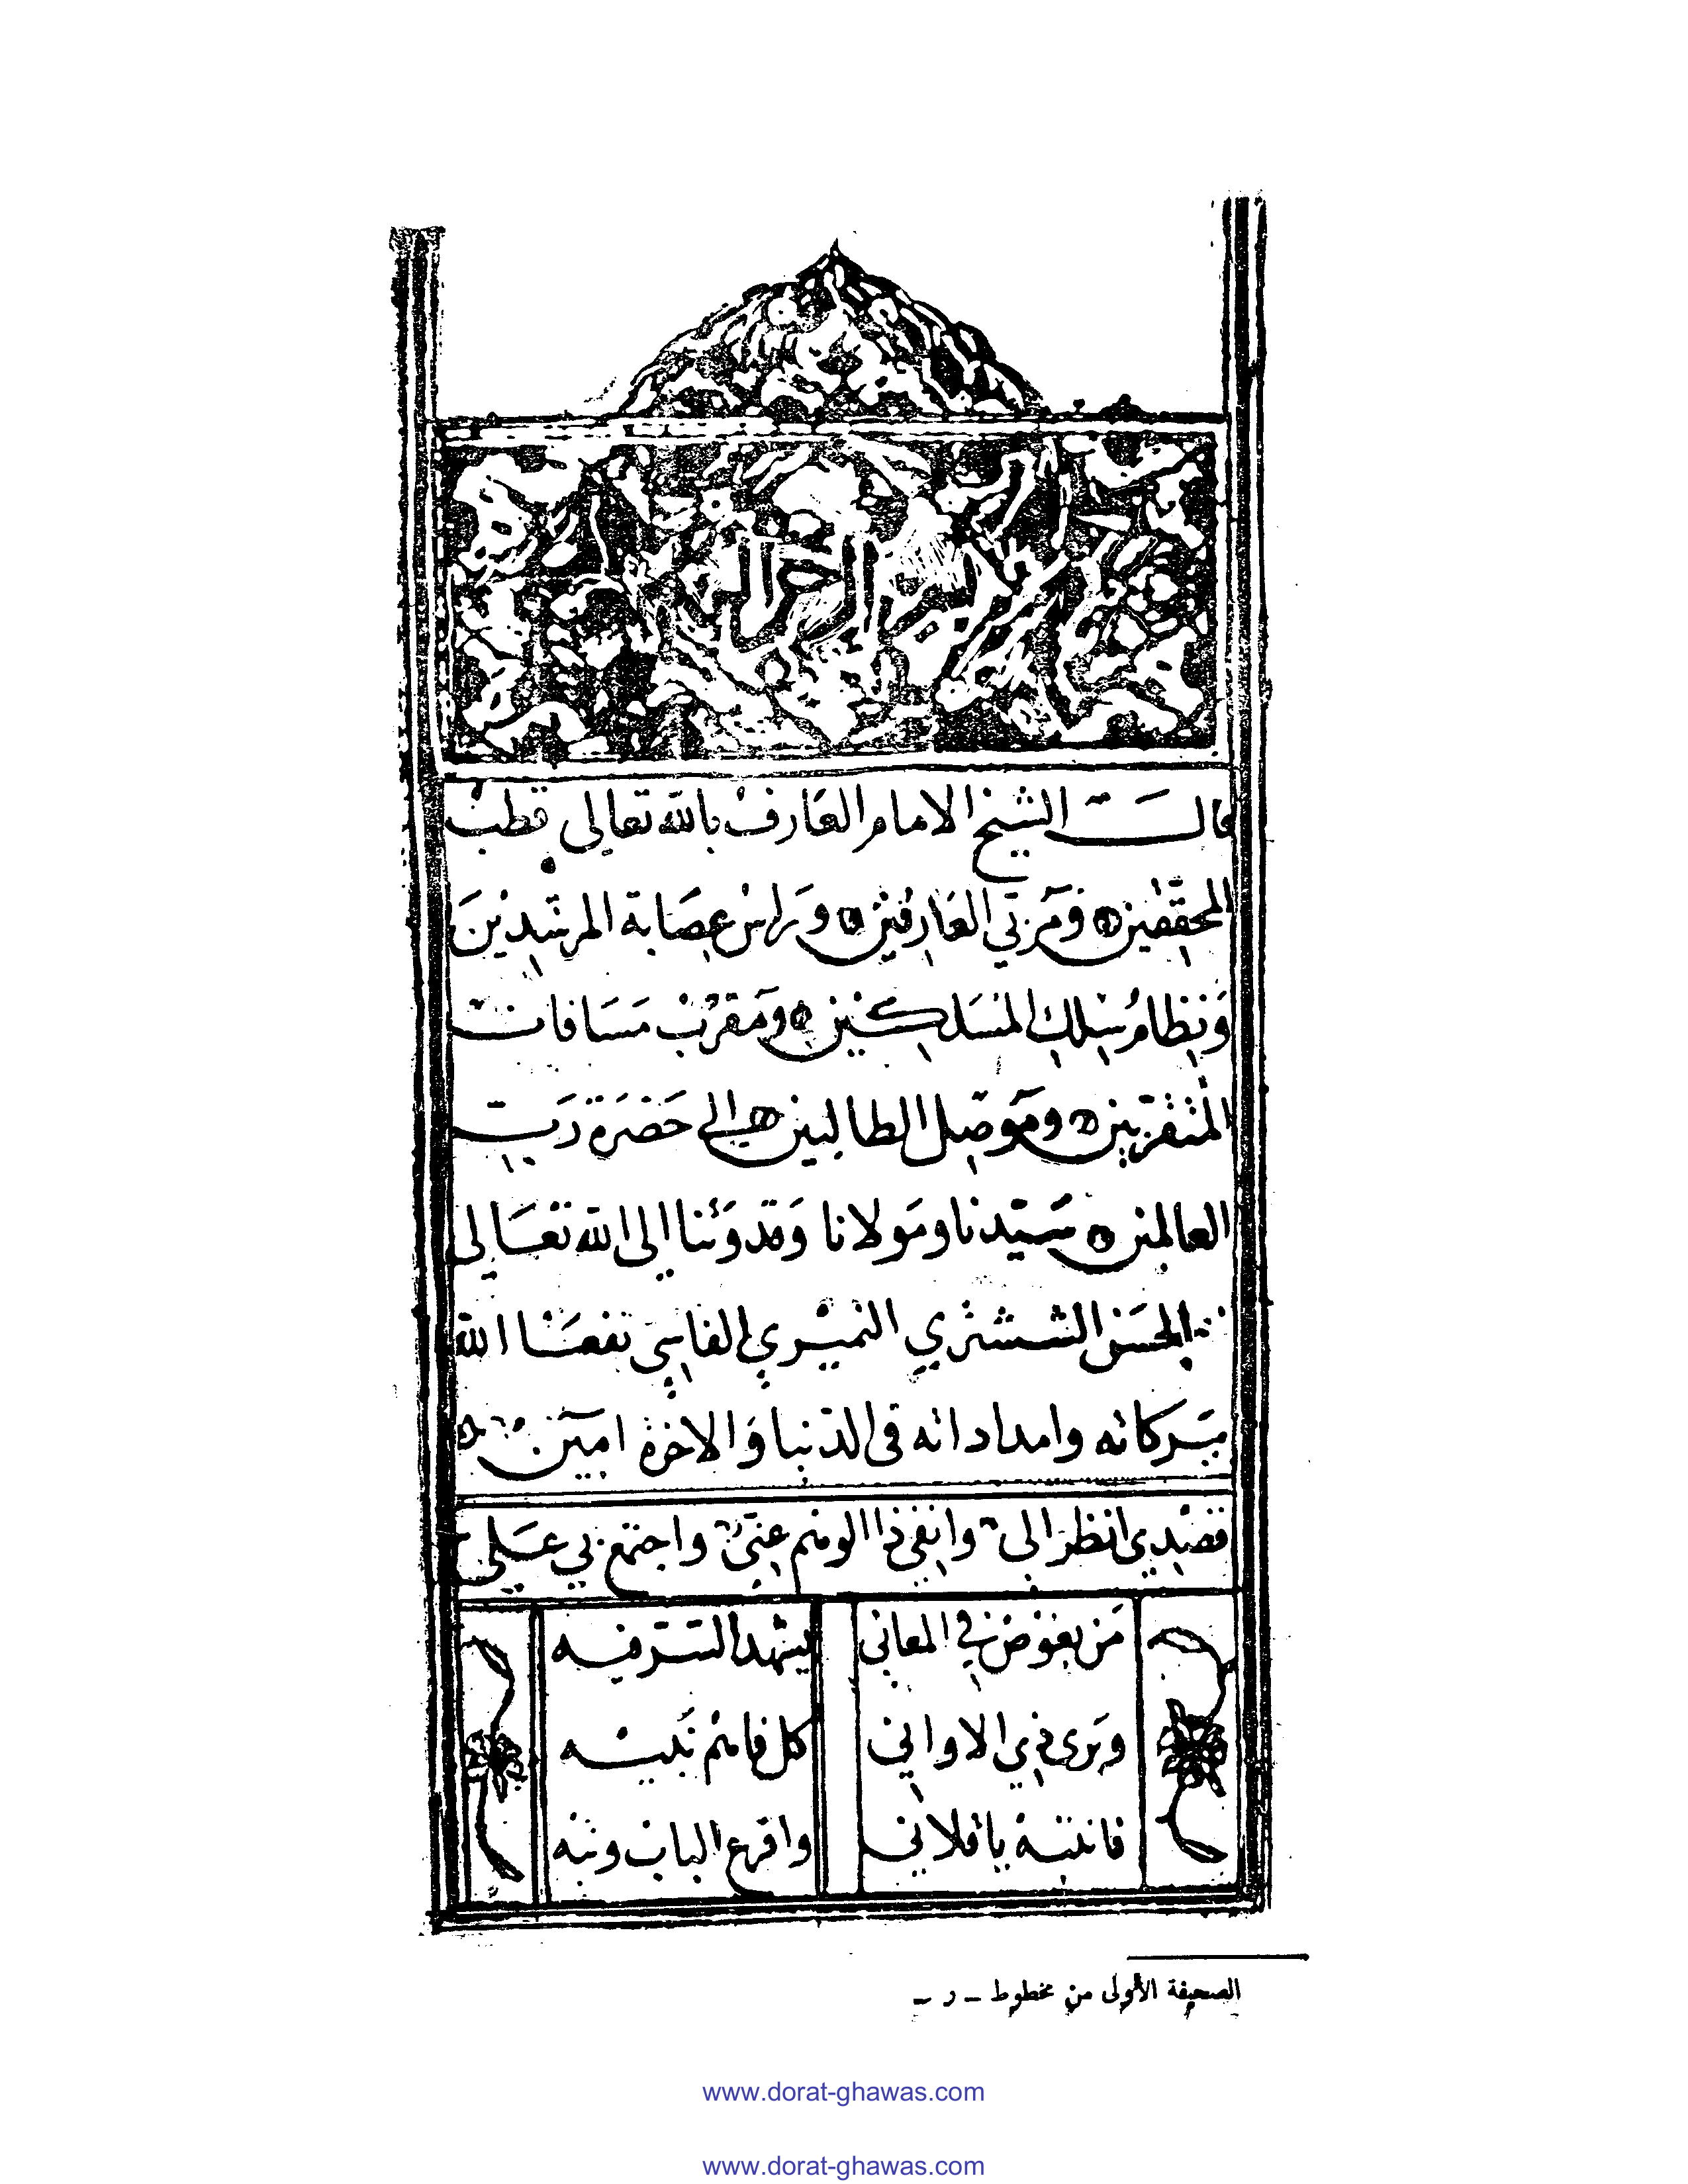 قال الشيخ الامام العارف بالله تعالى قطب
المحققين ومربي العارفين وراس عصابة المرشدين
ونظام سلك المسلكين ومقرب مسافات
المتقربين وموصل الطالبين الى حضرة رب
العالمين سيدنا ومولانا وقدوتنا الى الله تعالى
الحسن الششتري النميري الفاسي نفعنا الله
ببركاته وامداداته في الدنيا والاخرة امين
قصدي انظر الي وانفي ذا الوهم عني واجتمع بي علي
من يغوص في المعاني يشهد السر فيه
ويرى في الاواني كل فاهم نبيه
فانتبه يا فلاني واقرع الباب ونبه
الصحيفة الأولى من مخطوط - ر -
www.dorat-ghawas.com
www.dorat-ghawas.com